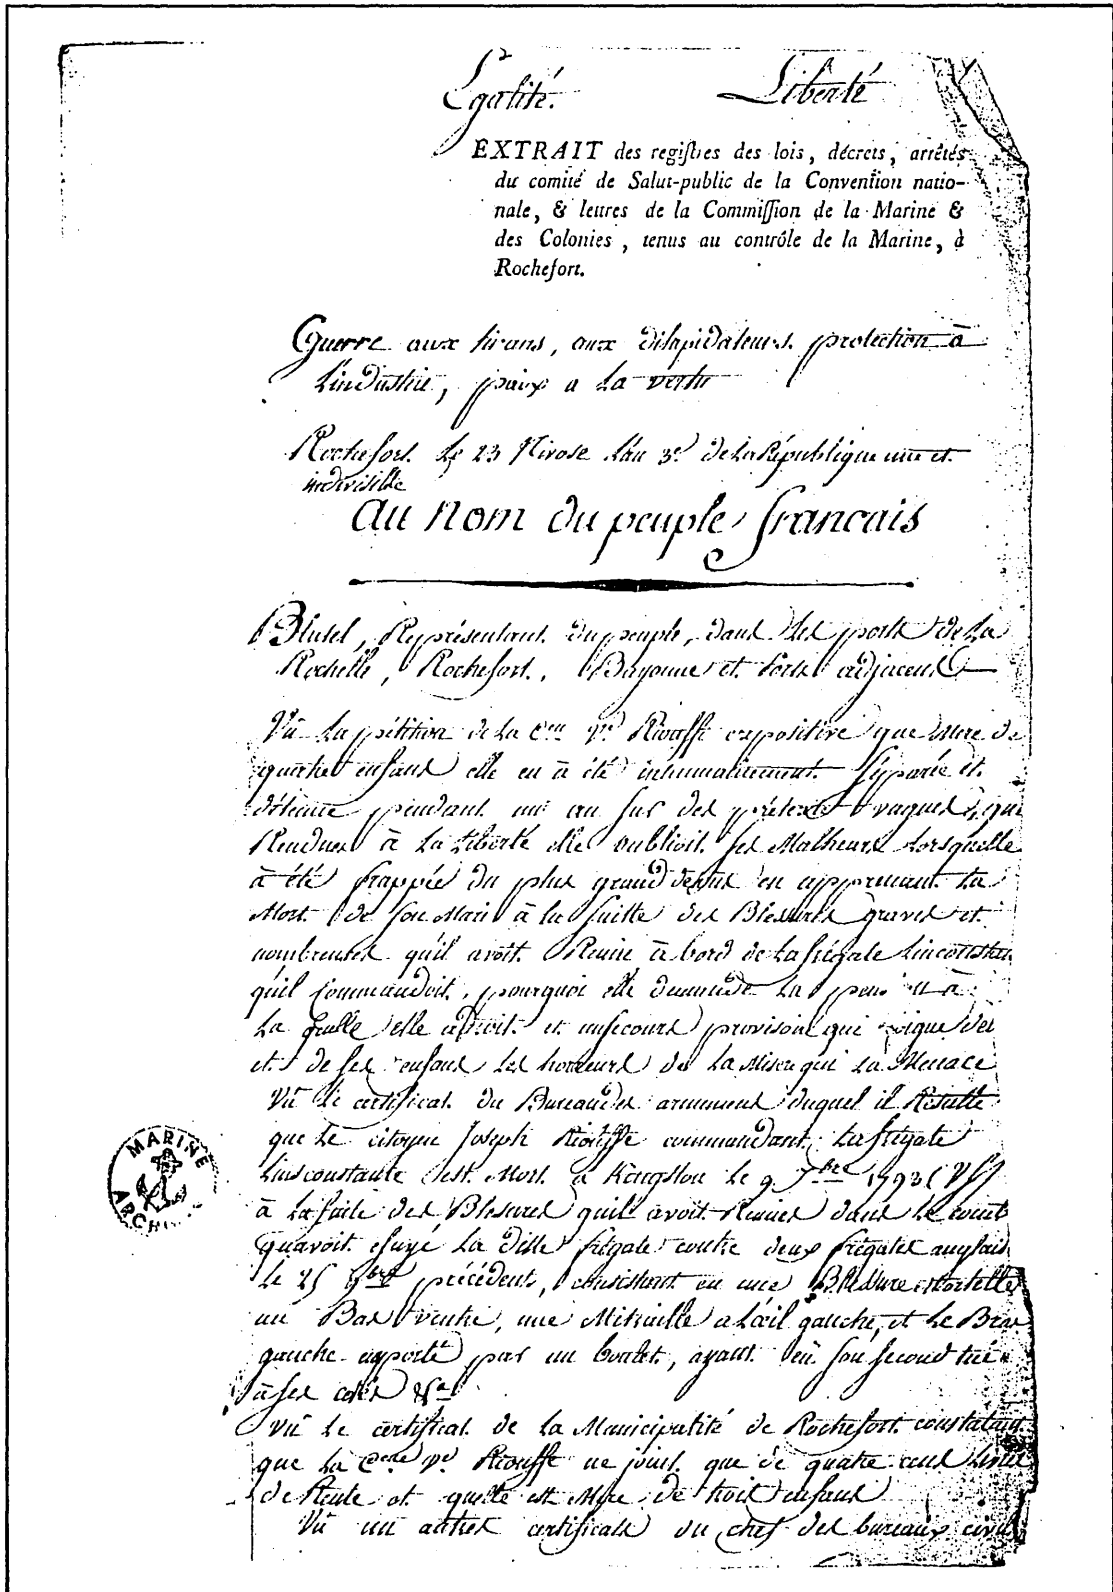 Egalité. Liberté
EXTRAIT des registres des lois, décrets, arrêtés
du comité de Salut-public de la Convention natio-
nale, & lettres de la Commission de la Marine &
des Colonies, tenus au contrôle de la Marine, à
Rochefort.
Guerre aux tirans, aux dilapidateurs. protection à
L'industrie, paix a La vertu
Rochefort Le 23 Nivose L'an 3e. de La République une et
indivisible
au nom du peuple francais
Blutel, Représentant du peuple, dans Les ports de La
Rochelle, Rochefort, Bayonne et Ports adjacens
Vû La pétition de La Cen. Ve. Riouffe expositive que Mere de
quatre enfans elle en à été inhumainement Séparée et
détenue pendant un an sur des prétextes vagues, que
Rendue à La Liberté elle oublioit ses Malheurs Lorsquelle
à été frappée du plus grand de tous en apprenant La
Mort de son Mari à la suitte des Blessures graves et
nombreuses qu'il avoit Recues à bord de La frégate Linconstan
qu'il Commandoit, pourquoi elle demande La pension à
La quelle elle a droit et un secours provisoire qui
et de ses enfans Les horreurs de La Misere qui La Menace
Vû Le certificat du Bureau des armemens duquel il Resulte
que Le citoyen Joseph Riouffe commandant La frégate
Linsconstante est Mort a Kengston Le 9 Xbre 1793 (VS)
à La suite des Blesures quil avoit Recues dans Le combat
quavoit essuyé La ditte frégate contre deux frégates anglais
Le 25 9bre précédent, consistant en une Blessure mortelle
au Bas ventre, une Mitraille a L'œil gauche, et Le Bras
gauche emporté par un boulet, ayant eu son second tué
à ses cotés &a
Vû Le certificat de La Municipalité de Rochefort constatant
que La Cene Ve Riouffe ne jouit que de quatre cens Livres
de Rente et quelle est Mere de trois enfans
Vû un autre certificat du chef des bureaux civils
MARINE
ARCHIV